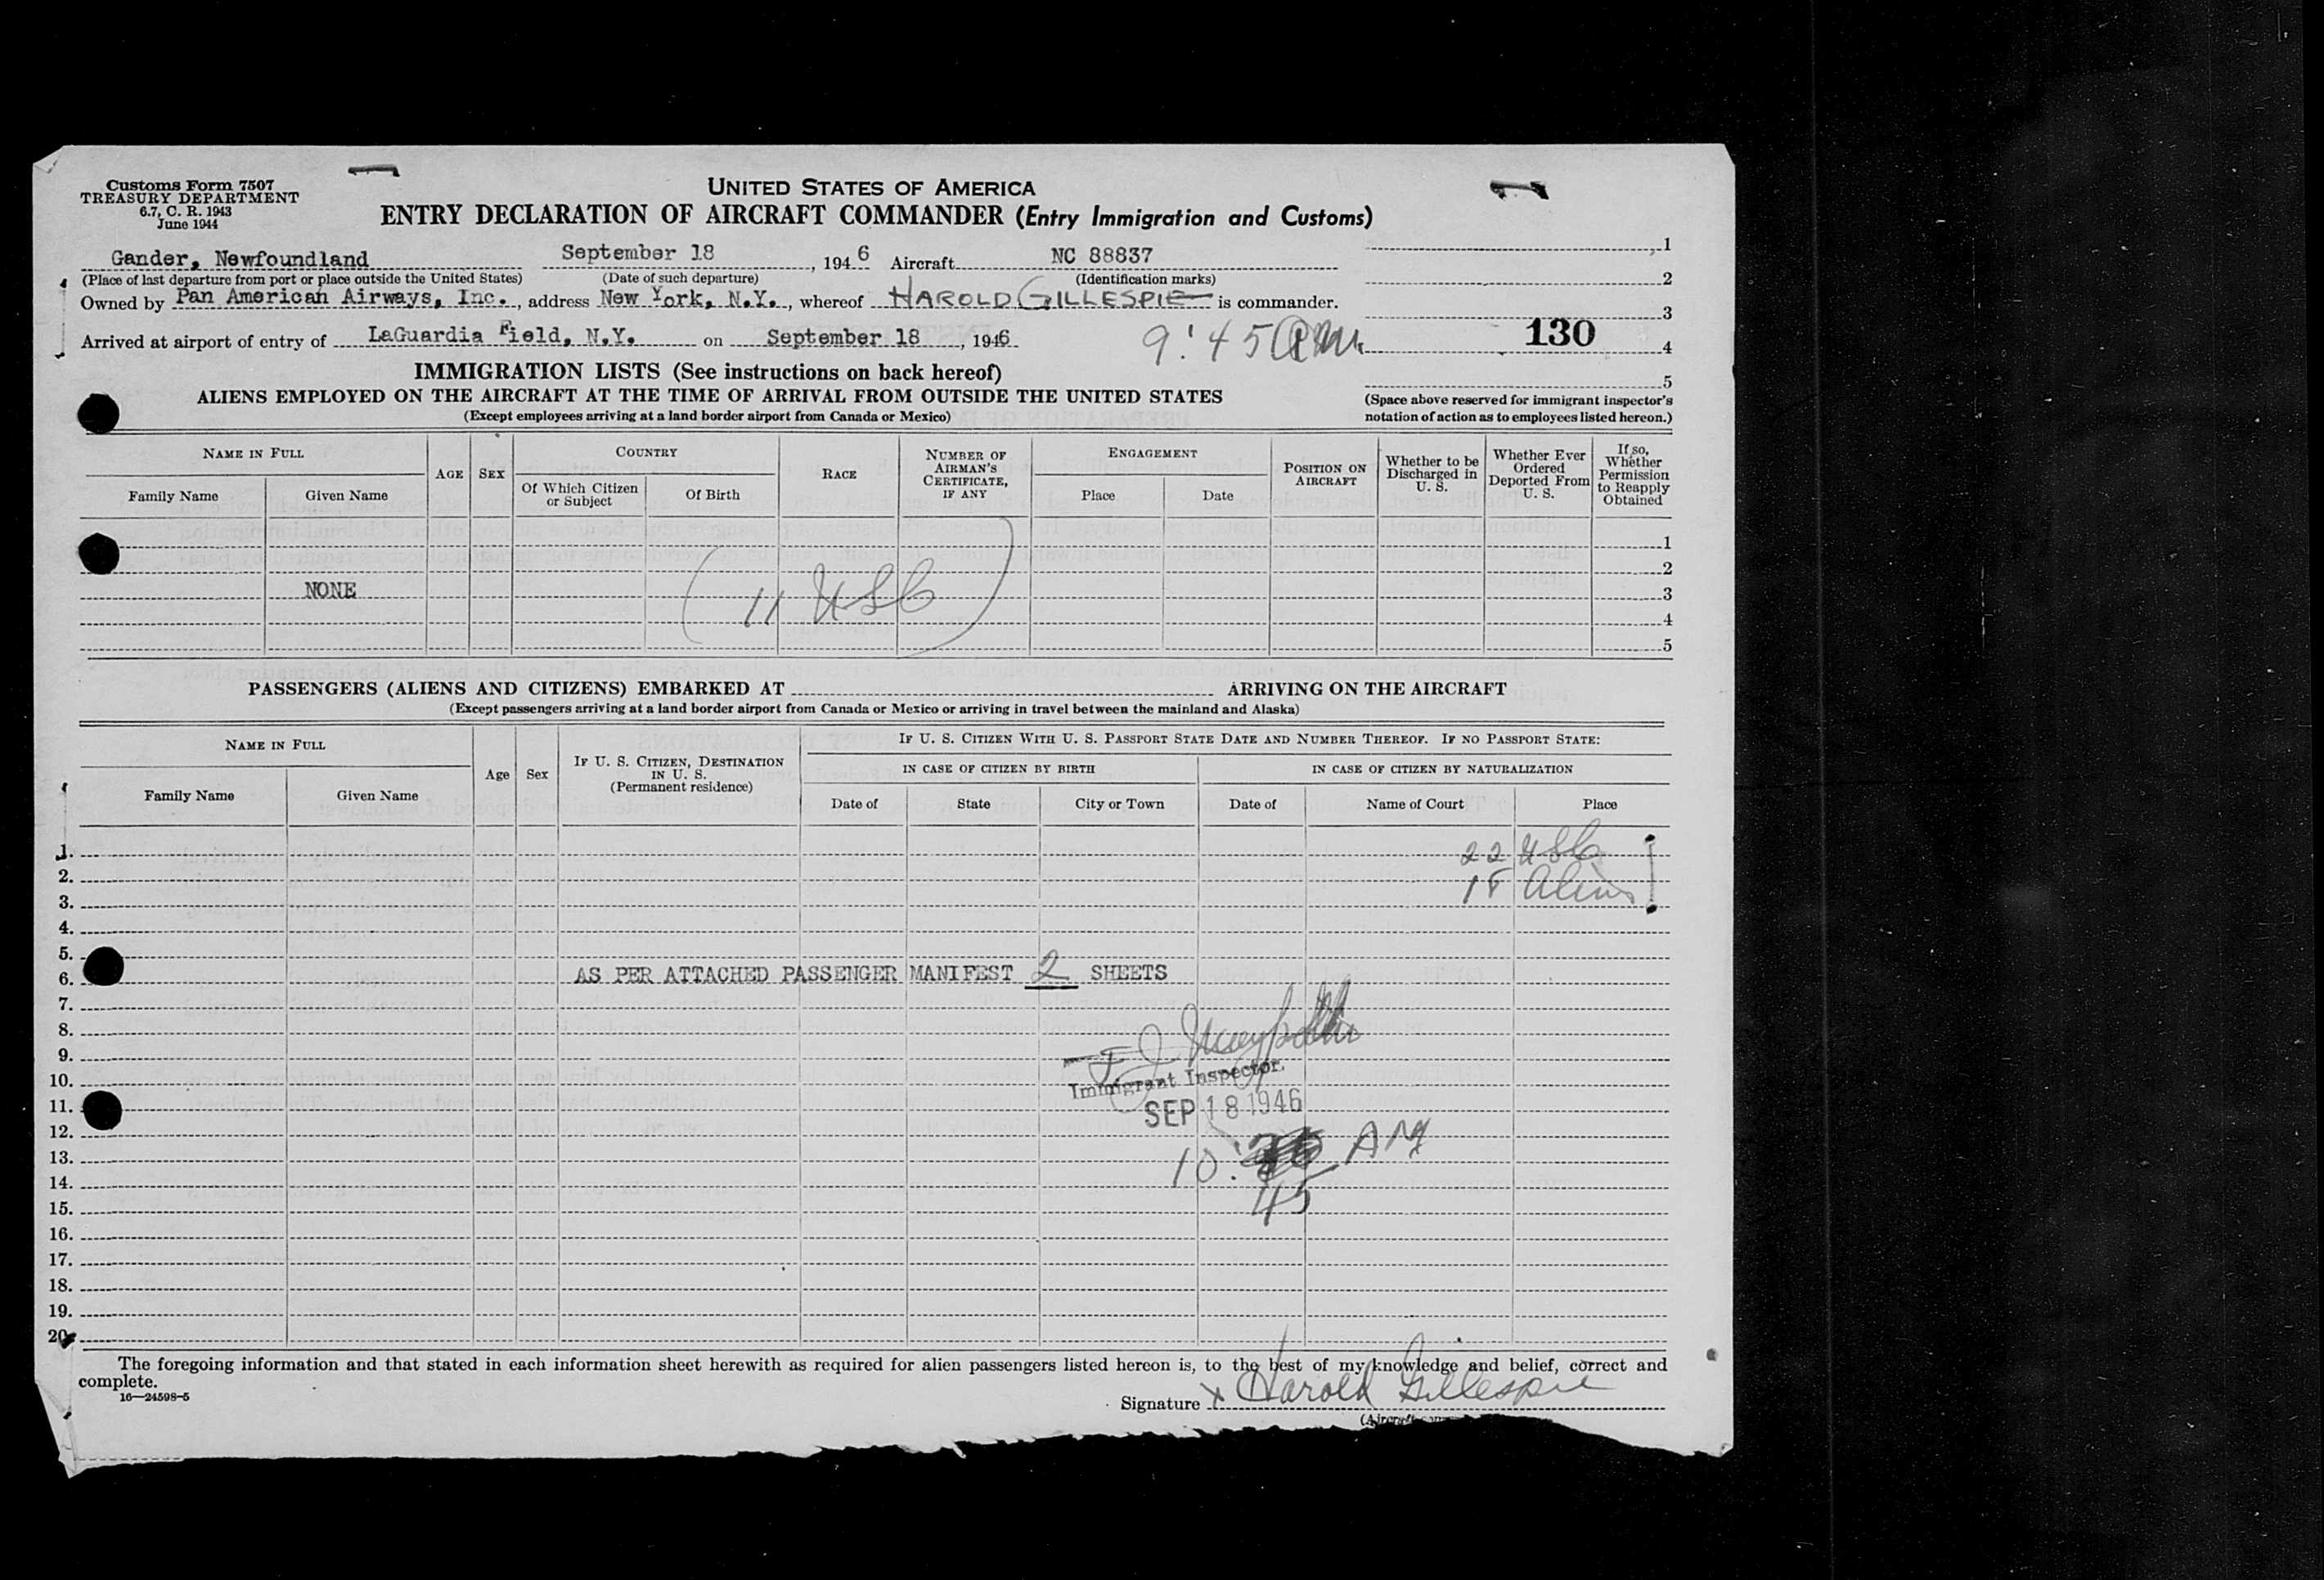 Customs Form 7507
TREASURY DEPARTMENT
6.7, C. R. 1943
June 1944
UNITED STATES OF AMERICA
ENTRY DECLARATION OF AIRCRAFT COMMANDER (Entry Immigration and Customs)
Gander, Newfoundland September 18, 1946 Aircraft NC 88837
(Place of last departure from port or place outside the United States) (Date of such departure) (Identification marks)
Owned by Pan American Airways, Inc., address New York, N.Y., whereof HAROLD GILLESPIE is commander.
Arrived at airport of entry of LaGuardia Field, N.Y. on September 18, 1946
9:45
1
2
3
130
4
5
(Space above reserved for immigrant inspector's
notation of action as to employees listed hereon.)
IMMIGRATION LISTS (See instructions on back hereof)
ALIENS EMPLOYED ON THE AIRCRAFT AT THE TIME OF ARRIVAL FROM OUTSIDE THE UNITED STATES
(Except employees arriving at a land border airport from Canada or Mexico)
NAME IN FULL
Family Name
Given Name
AGE
SEX
COUNTRY
Of Which Citizen
or Subject
Of Birth
RACE
NUMBER OF
AIRMAN'S
CERTIFICATE,
IF ANY
ENGAGEMENT
Place
Date
POSITION ON
AIRCRAFT
Whether to be
Discharged in
U. S.
Whether Ever
Ordered
Deported From
U. S.
If so,
Whether
Permission
to Reapply
Obtained
1
2
NONE 3
4
5
(11 USC)
PASSENGERS (ALIENS AND CITIZENS) EMBARKED AT ARRIVING ON THE AIRCRAFT
(Except passengers arriving at a land border airport from Canada or Mexico or arriving in travel between the mainland and Alaska)
NAME IN FULL
Family Name
Given Name
Age
Sex
IF U. S. CITIZEN, DESTINATION
IN U. S.
(Permanent residence)
IF U. S. CITIZEN WITH U. S. PASSPORT STATE DATE AND NUMBER THEREOF. IF NO PASSPORT STATE:
IN CASE OF CITIZEN BY BIRTH
IN CASE OF CITIZEN BY NATURALIZATION
Date of
State
City or Town
Date of
Name of Court
Place
1. 22 USC
2. Aliens
3.
4.
5.
6. AS PER ATTACHED PASSENGER MANIFEST 2 SHEETS
7.
8.
9.
10. Immigrant Inspector.
11. SEP 18 1946
12.
13. 10: AM
14.
15. 45
16.
17.
18.
19.
20.
The foregoing information and that stated in each information sheet herewith as required for alien passengers listed hereon is, to the best of my knowledge and belief, correct and
complete.
16—24598-5
Signature x Harold Gillespie
(Aircraft